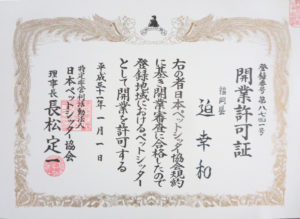 登録番号 第八七四一号
開業許可証
福岡県
迫 幸和
右の者日本ペットシッター協会規約
に基き開業審査に合格したので
登録地域におけるペットシッター
として開業を許可する
平成三十一年一月一日
特定非営利活動法人
日本ペットシッター協会
理事長 長松定一